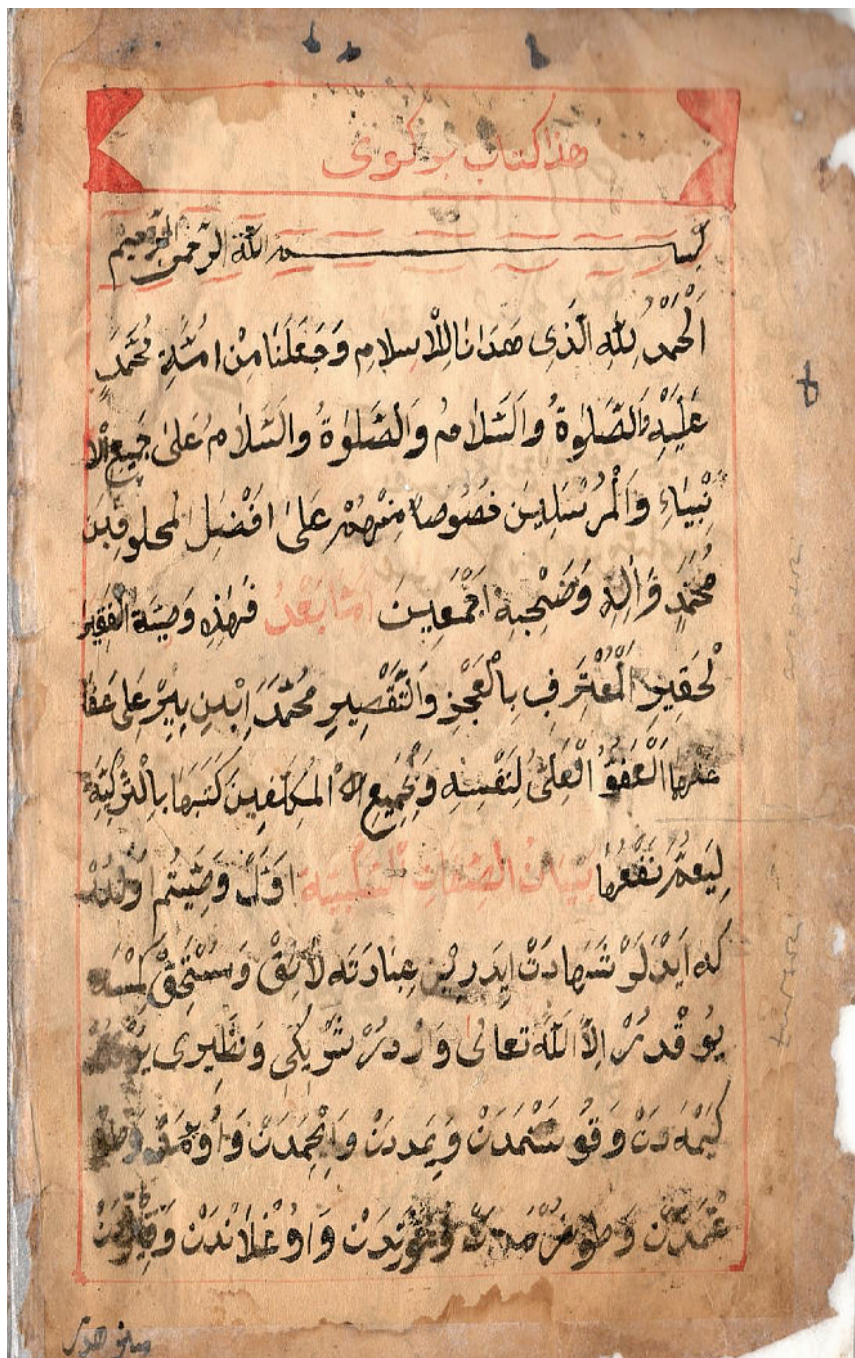 هذا كتاب بركوى
بسم الله الرحمن الرحيم
اَلْحَمْدُ لِلّٰهِ الَّذِى هَدَانَا لِلْاِسْلَامِ وَجَعَلَنَا مِنْ اُمَّةِ مُحَمَّدٍ
عَلَيْهِ الصَّلٰوةُ وَالسَّلَامُ وَالصَّلٰوةُ وَالسَّلَامُ عَلٰى جَمِيعِ الْاَ
نْبِيَاءِ وَالْمُرْسَلِينَ خُصُوصاً مِنْهُمْ عَلٰى اَفْضَلِ المخلوقين
مُحَمَّدٍ وَاٰلِهِ وَصَحْبِهِ اَجْمَعِينَ اَمَّا بَعْدُ فَهٰذِهِ وَصِيَّةُ الْفَقِيرِ
لْحَقِيرِ الْمُعْتَرِفِ بِالْعَجْزِ وَالتَّقْسِيرِ مُحَمَّدَ اِبْنِ بِيرْ عَلِى عَفَا
عنهما الْعَفُوُّ الْعَلِىُّ لِنَفْسِهِ وَلِجَمِيعِ الْمُكَلَّفِينَ كَتَبَهَا بِالتُّرْكِيَّةِ
لِيَعُمَّ نَفْعُهَا بَيَانُ الصِّفَاتِ اَوَّلْ وَصِيَّتُم اولدر
كه اَيْدَلَرْ شَهَادَتْ اِيدَرِينْ عِبَادَتَه لَايِقْ وَمُسْتَحِقْ كِمْسَه
يُوقْدُرْ اِلَّا اللّٰهُ تَعَالٰى وَارْدُرْ شَرِيكِى وَنَظِيرِى يُوقْدُرْ
يَيْمَه دَنْ وَ وَ وَاِيچْمَدَنْ وَ
وَ وَ وَاوُغْلَانْدَنْ وَقِيزْدَنْ